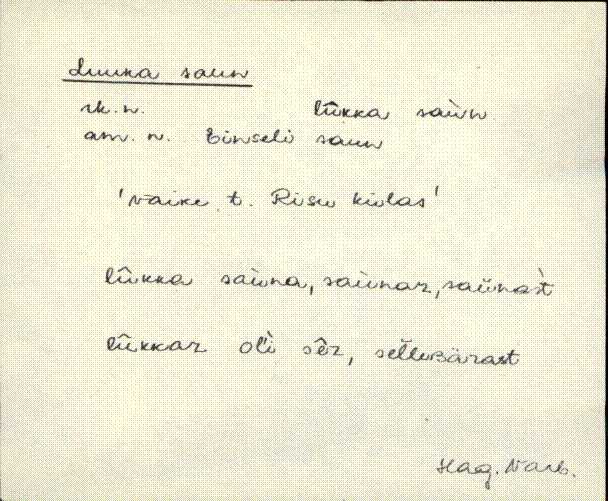 Luuka saun
rk. n. lûkka saùn
am. n. Einseli saun
'väike t. Risu külas'
lûkka saùna, saùnaz, saùnast
lûkkaz oli sêz, selleᴘärast
Hag. Varb.